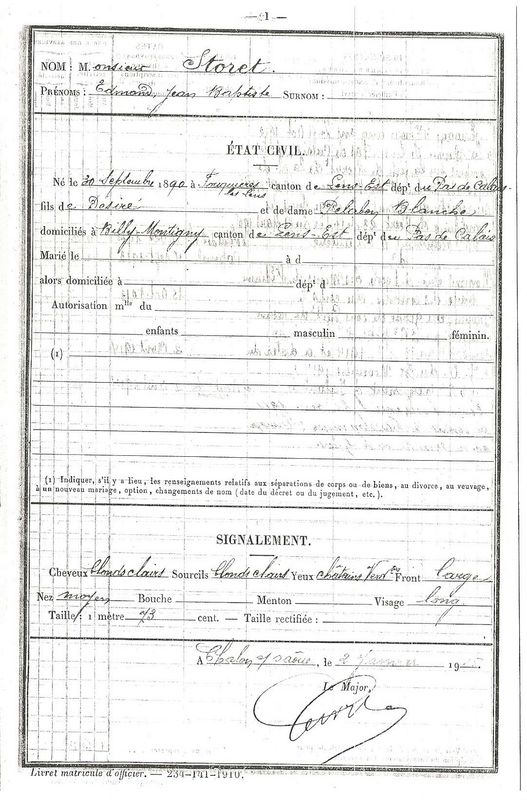 — 1 —
NOM : Monsieur Storet.
PRÉNOMS : Edmond, Jean Baptiste SURNOM :
ÉTAT CIVIL.
Né le 30 Septembre 1890 à Fouquières les Lens canton de Lens-Est dépt du Pas de Calais
fils de Désiré et de dame Delabon Blanche,
domiciliés à Billy-Montigny canton de Lens-Est dépt du Pas de Calais
Marié le à d
alors domiciliée à dépt d
Autorisation mlle du
enfants masculin féminin.
(1)
(1) Indiquer, s'il y a lieu, les renseignements relatifs aux séparations de corps ou de biens, au divorce, au veuvage,
à un nouveau mariage, option, changements de nom (date du décret ou du jugement, etc.).
SIGNALEMENT.
Cheveux blonds clairs Sourcils blonds clairs Yeux châtains Front large
Nez moyen Bouche Menton Visage long
Taille : 1 mètre 73 cent. — Taille rectifiée :
A Chalon s/ Saône, le 2 Janvier 19
Le Major,
Livret matricule d'officier. — 234-141-1910.